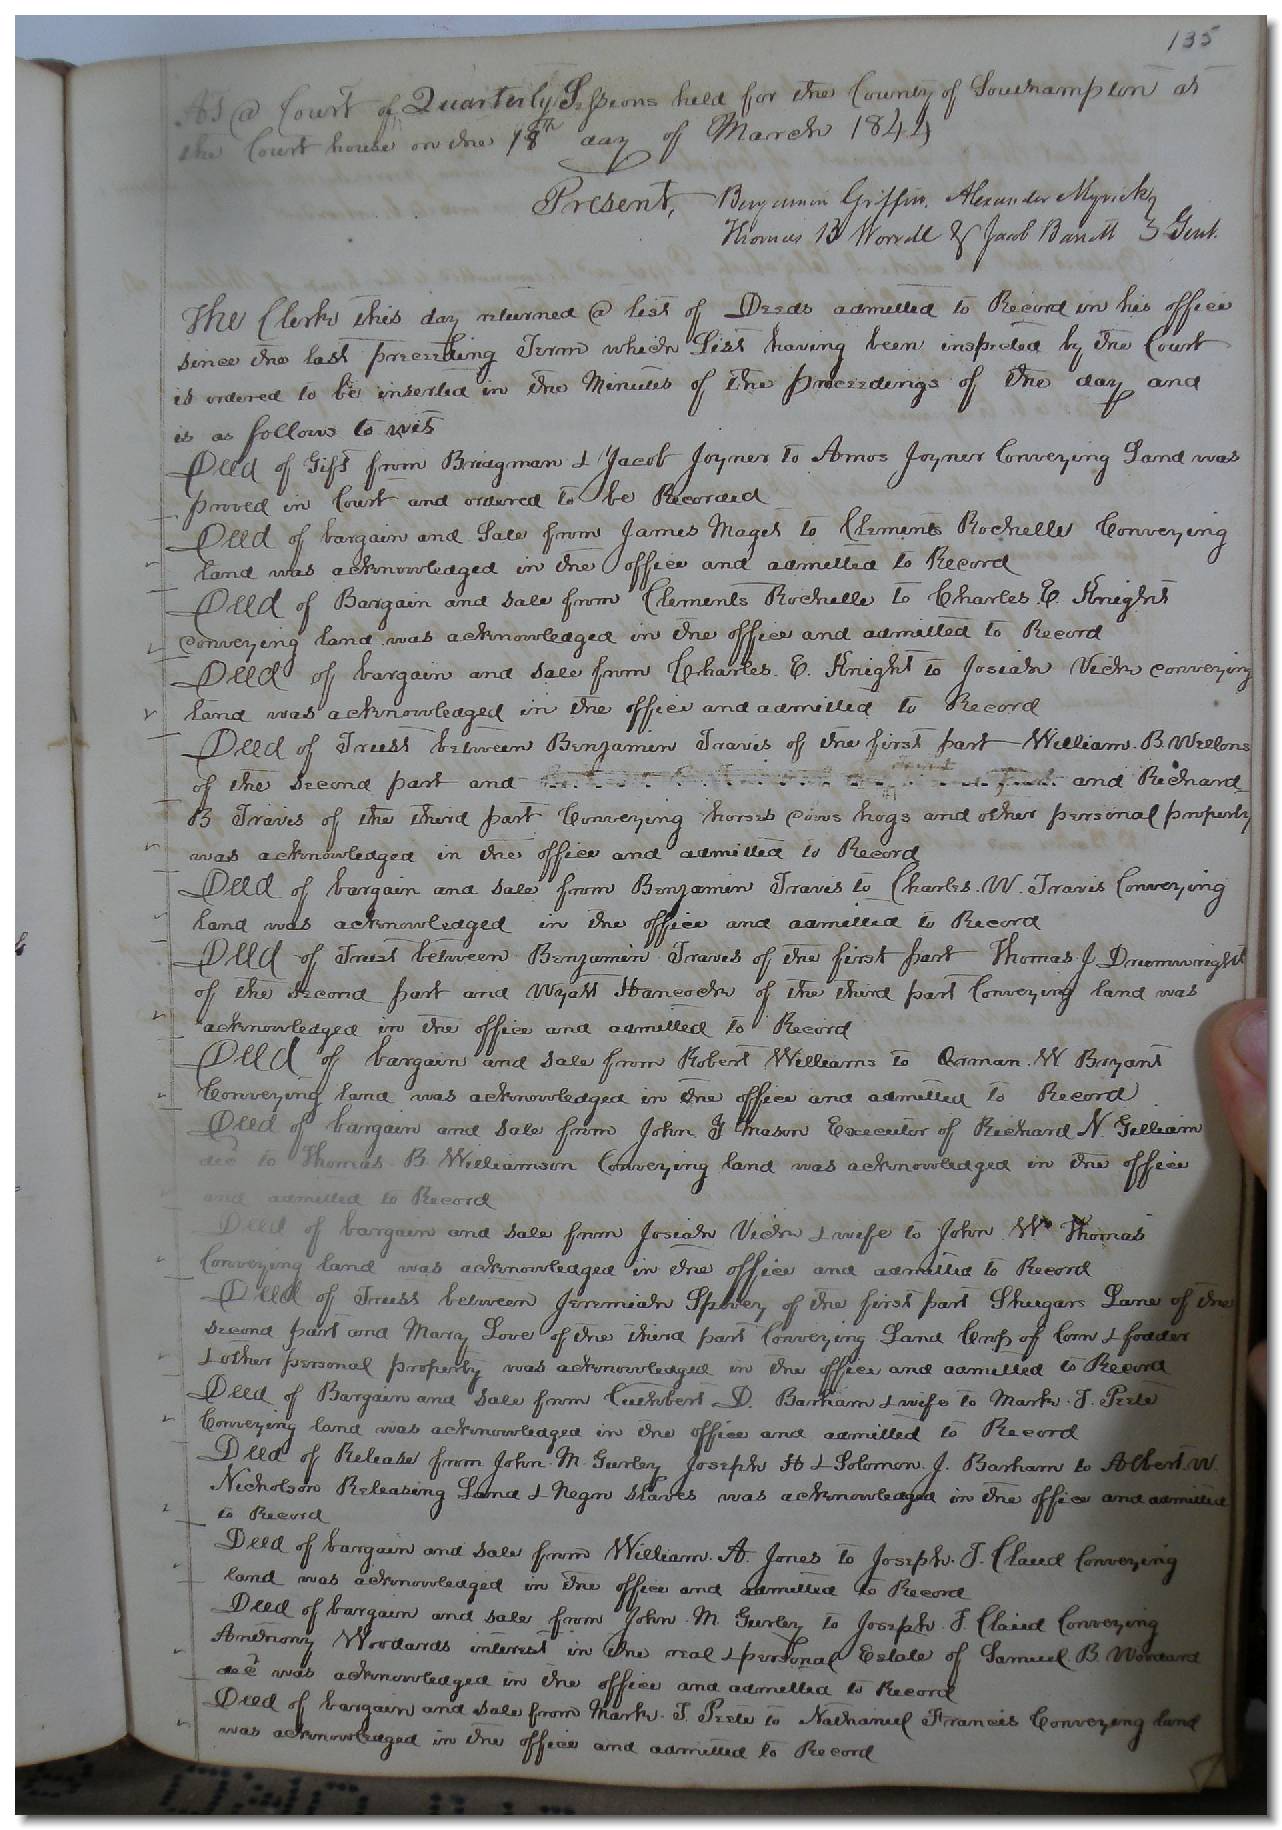 135
At @ Court of Quarterly Sessions held for the County of Southampton at
the Court house on the 18th day of March 1844
Present, Benjamin Griffin, Alexander Myrick,
Thomas B Worrell & Jacob Barrett } Gent.
The Clerk this day returned @ list of Deeds admitted to Record in his office
since the last preceeding Term which List having been inspected by the Court
is ordered to be inserted in the Minutes of the proceedings of the day and
is as follows to wit
Deed of Gift from Bridgman & Jacob Joyner to Amos Joyner Conveying Land was
proved in Court and ordered to be Recorded
Deed of bargain and Sale from James Maget to Clements Rochelle Conveying
land was acknowledged in the office and admitted to Record
Deed of Bargain and sale from Clements Rochelle to Charles. E. Knight
conveying land was acknowledged in the office and admitted to Record
Deed of bargain and sale from Charles. E. Knight to Josiah Vick conveying
land was acknowledged in the office and admitted to Record
Deed of Trust between Benjamin Travis of the first part William. B. Wellons
of the second part and and Richard
B Travis of the third part Conveying horses cows hogs and other personal property
was acknowledged in the office and admitted to Record
Deed of bargain and sale from Benjamin Travis to Charles. W. Travis Conveying
land was acknowledged in the office and admitted to Record
Deed of Trust between Benjamin Travis of the first part Thomas J Drumwright
of the second part and Wyatt Hancock of the third part Conveying land was
acknowledged in the office and admitted to Record
Deed of bargain and sale from Robert Williams to Orman. W Bryant
Conveying land was acknowledged in the office and admitted to Record
Deed of bargain and sale from John Y Mason Executor of Richard N. Gilliam
decd to Thomas B. Williamson Conveying land was acknowledged in the office
and admitted to Record
Deed of bargain and sale from Josiah Vick & wife to John Wm Thomas
Conveying land was acknowledged in the office and admitted to Record
Deed of Trust between Jeremiah Spivey of the first part Shugars Lane of the
second part and Mary Love of the third part Conveying Land Crop of Corn & fodder
& other personal property was acknowledged in the office and admitted to Record
Deed of Bargain and sale from Cuthbert D. Barham & wife to Mark. T. Peete
Conveying land was acknowledged in the office and admitted to Record
Deed of Release from John. M. Gurley Joseph H & Solomon. J. Barham to Albert. W.
Nicholson Releasing Land & Negro slaves was acknowledged in the office and admitted
to Record
Deed of bargain and sale from William. A. Jones to Joseph. T. Claud Conveying
land was acknowledged in the office and admitted to Record
Deed of bargain and sale from John. M. Gurley to Joseph. T. Claud Conveying
Anthony Woodards interest in the real & personal Estate of Samuel. B. Woodard
decd was acknowledged in the office and admitted to Record
Deed of bargain and sale from Mark. T. Peete to Nathaniel Francis Conveying land
was acknowledged in the office and admitted to Record